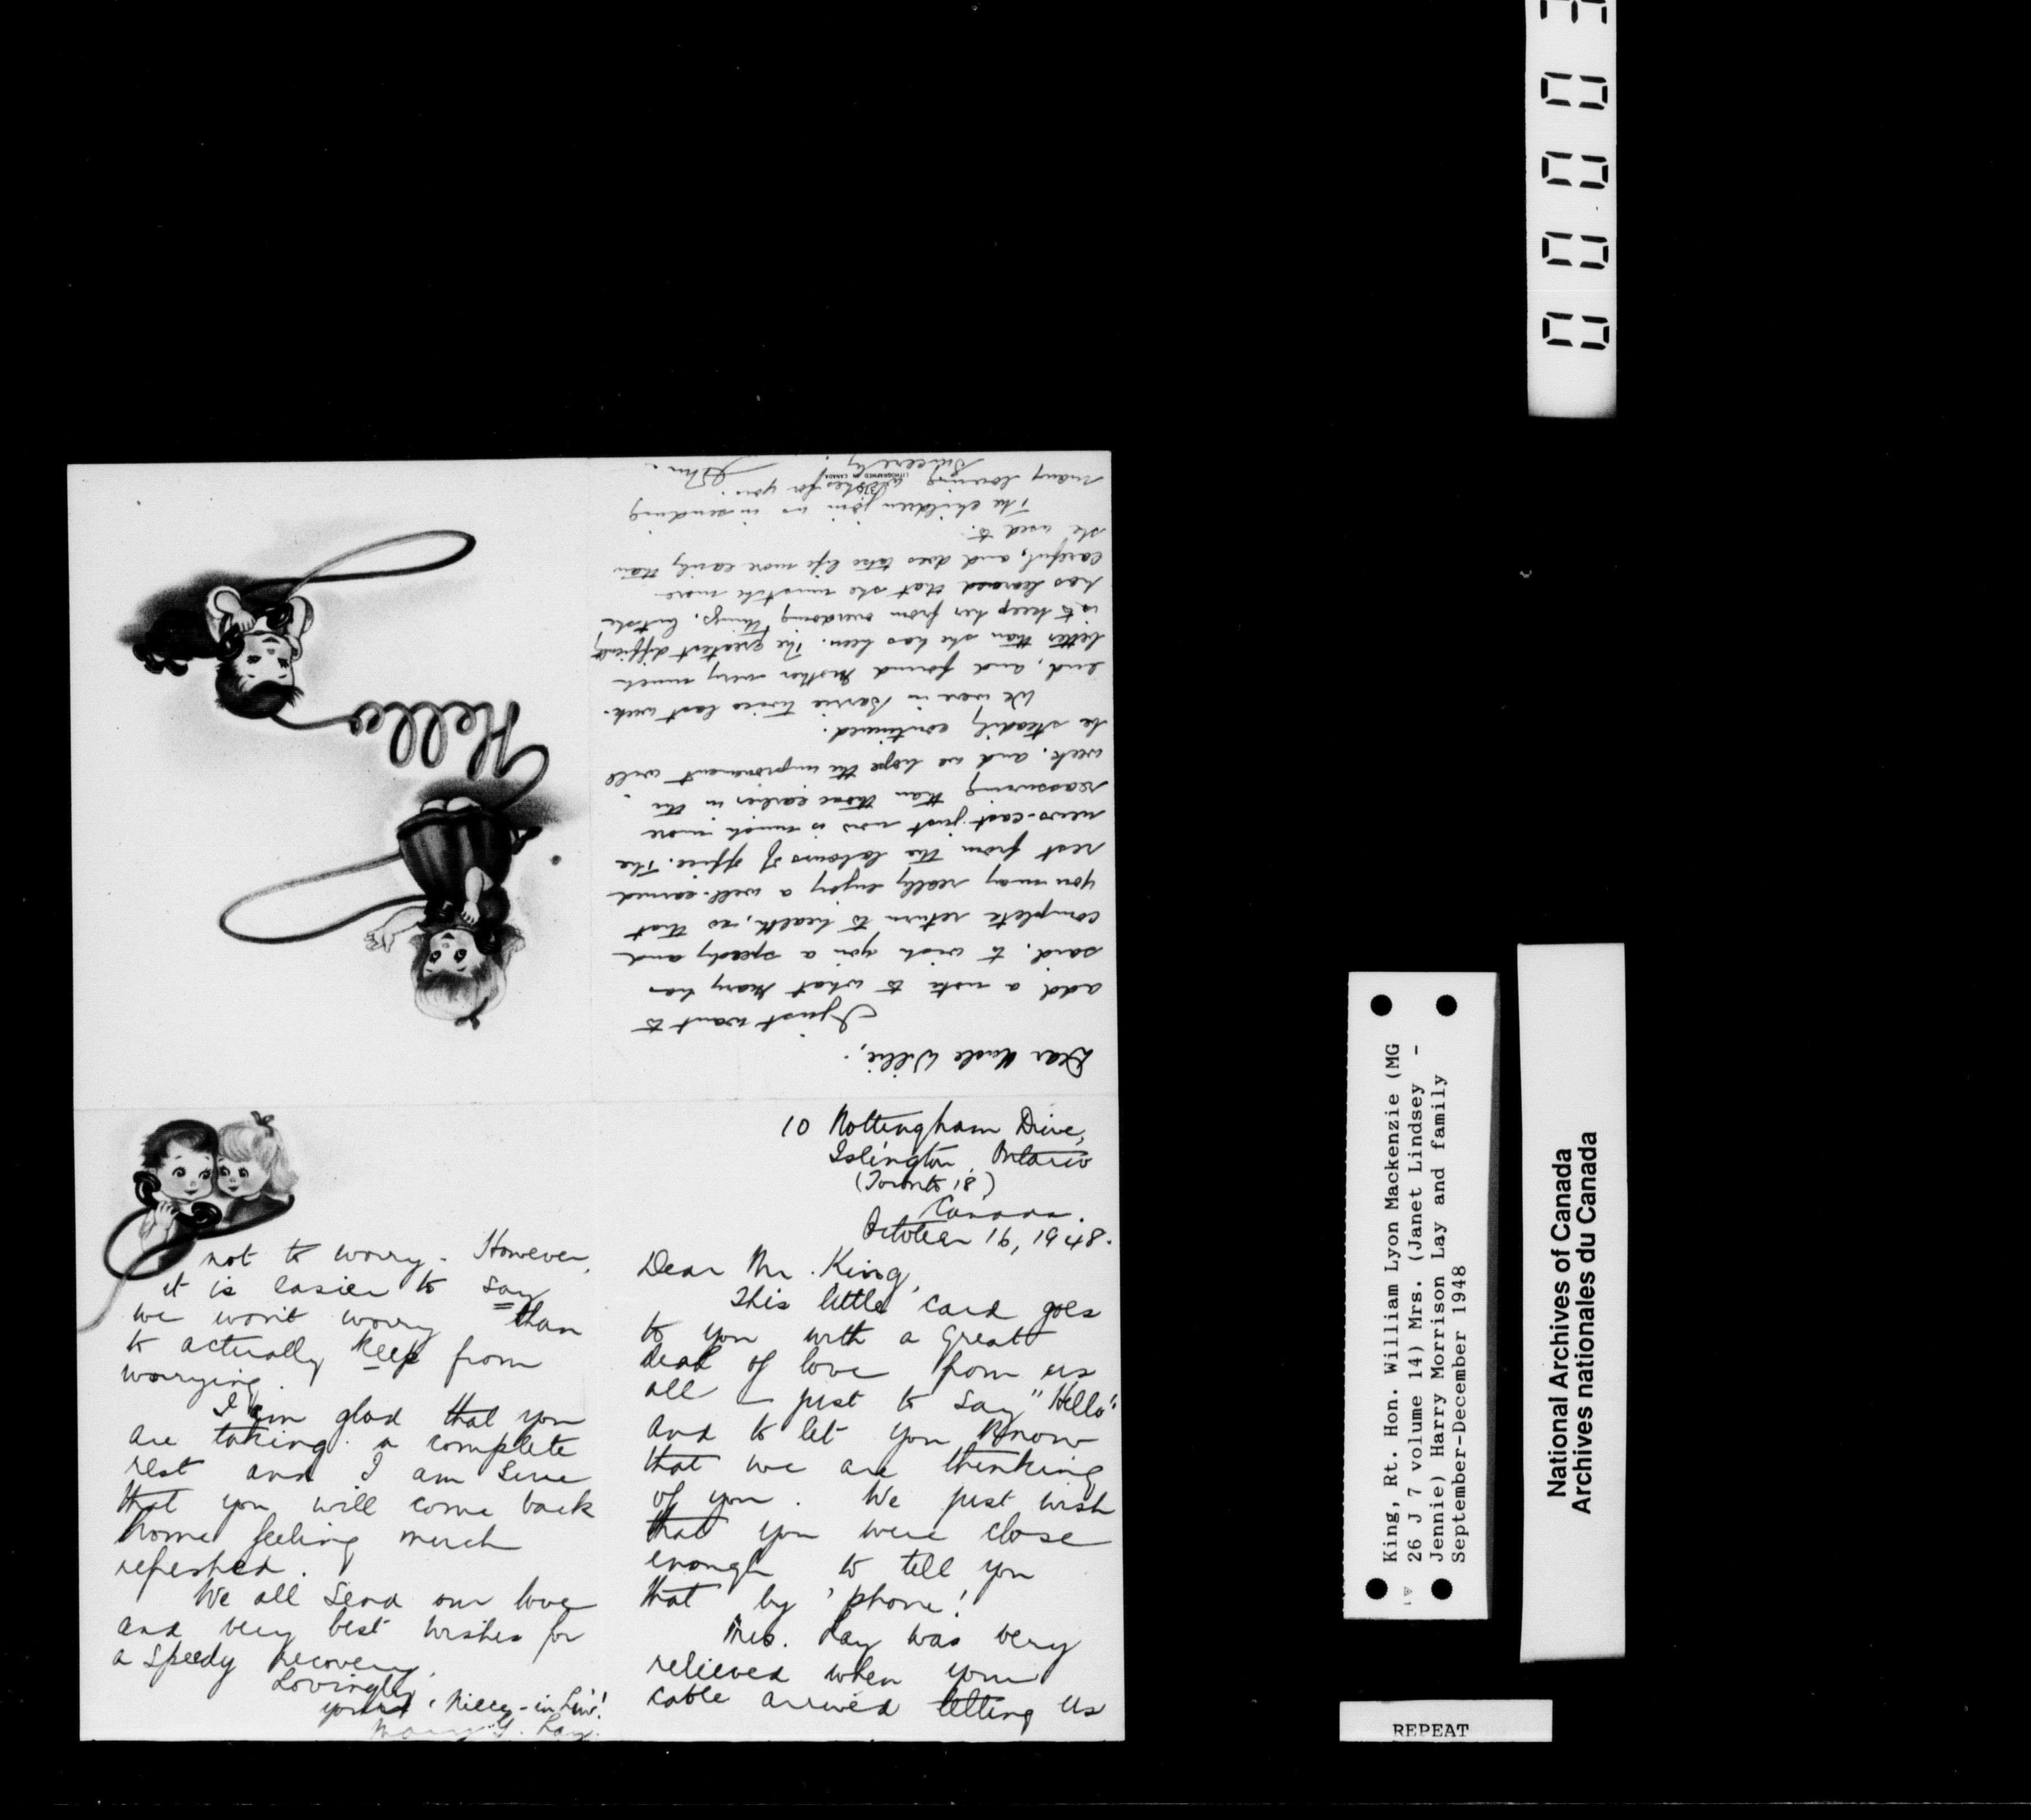 10 Nottingham Drive,
Islington, Ontario
(Toronto 18)
Canada.
October 16, 1948.
Dear Mr. King,
This little card goes
to you with a great
deal of love from us
all – just to say "Hello"
and to let you know
that we are thinking
of you. We just wish
that you were close
enough to tell you
that by 'phone!
Mrs. Lay was very
relieved when your
cable arrived letting us
not to worry. However,
it is easier to say
we won't worry than
to actually keep from
worrying.
I am glad that you
are taking a complete
rest and I am sure
that you will come back
home feeling much
refreshed.
We all send our love
and very best wishes for
a speedy recovery.
Lovingly
yours, "Niece-in-Law"
Mary G. Lay.
Hello
Dear Uncle Willie,
I just want to
add a note to what Mary has
said, to wish you a speedy and
complete return to health, so that
you may really enjoy a well-earned
rest from the labours of office. The
news-cast just now is much more
reassuring than those earlier in the
week, and we hope the improvement will
be steadily continued.
We were in Barrie twice last week-
end, and found Mother very much
better than she has been. The greatest difficulty
is to keep her from overdoing things, but she
has learned that she must be more
careful, and does take life more easily than
she used to.
The children join us in sending
many loving wishes for you.
Sincerely,
LITHOGRAPHED IN CANADA
0 0 0 0 3
King, Rt. Hon. William Lyon Mackenzie (MG
26 J 7 volume 14) Mrs. (Janet Lindsey -
Jennie) Harry Morrison Lay and family
September-December 1948
National Archives of Canada
Archives nationales du Canada
REPEAT